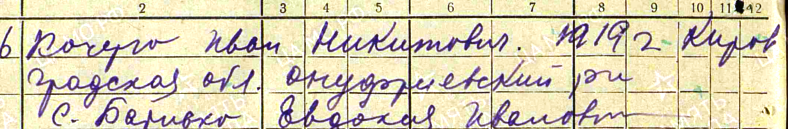 2 3 4 5 6 7 8 9 10 11 12
6 Кочерго Иван Никитович. 1919 г Киров
градская обл. Онуфриевский р-н
с. Евдокия Ивановн